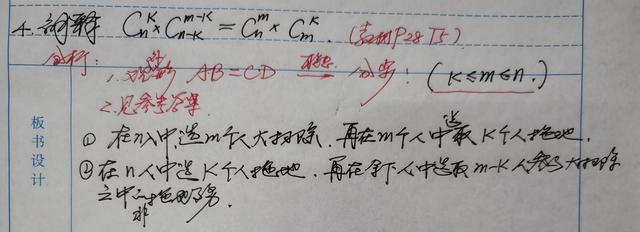 4. 解释 C_n^K × C_{n-K}^{m-K} = C_n^m × C_m^K. (教材P28 T5)
分析:
1. 观察 AB=CD → 分步! (K≤m≤n.)
2. 见参考答案
板书设计
① 在n人中选m个人大扫除, 再在m个人中选取K个人拖地.
② 在n人中选K个人拖地, 再在余下人中选取m-K人参与大扫除
之中非拖地劳.